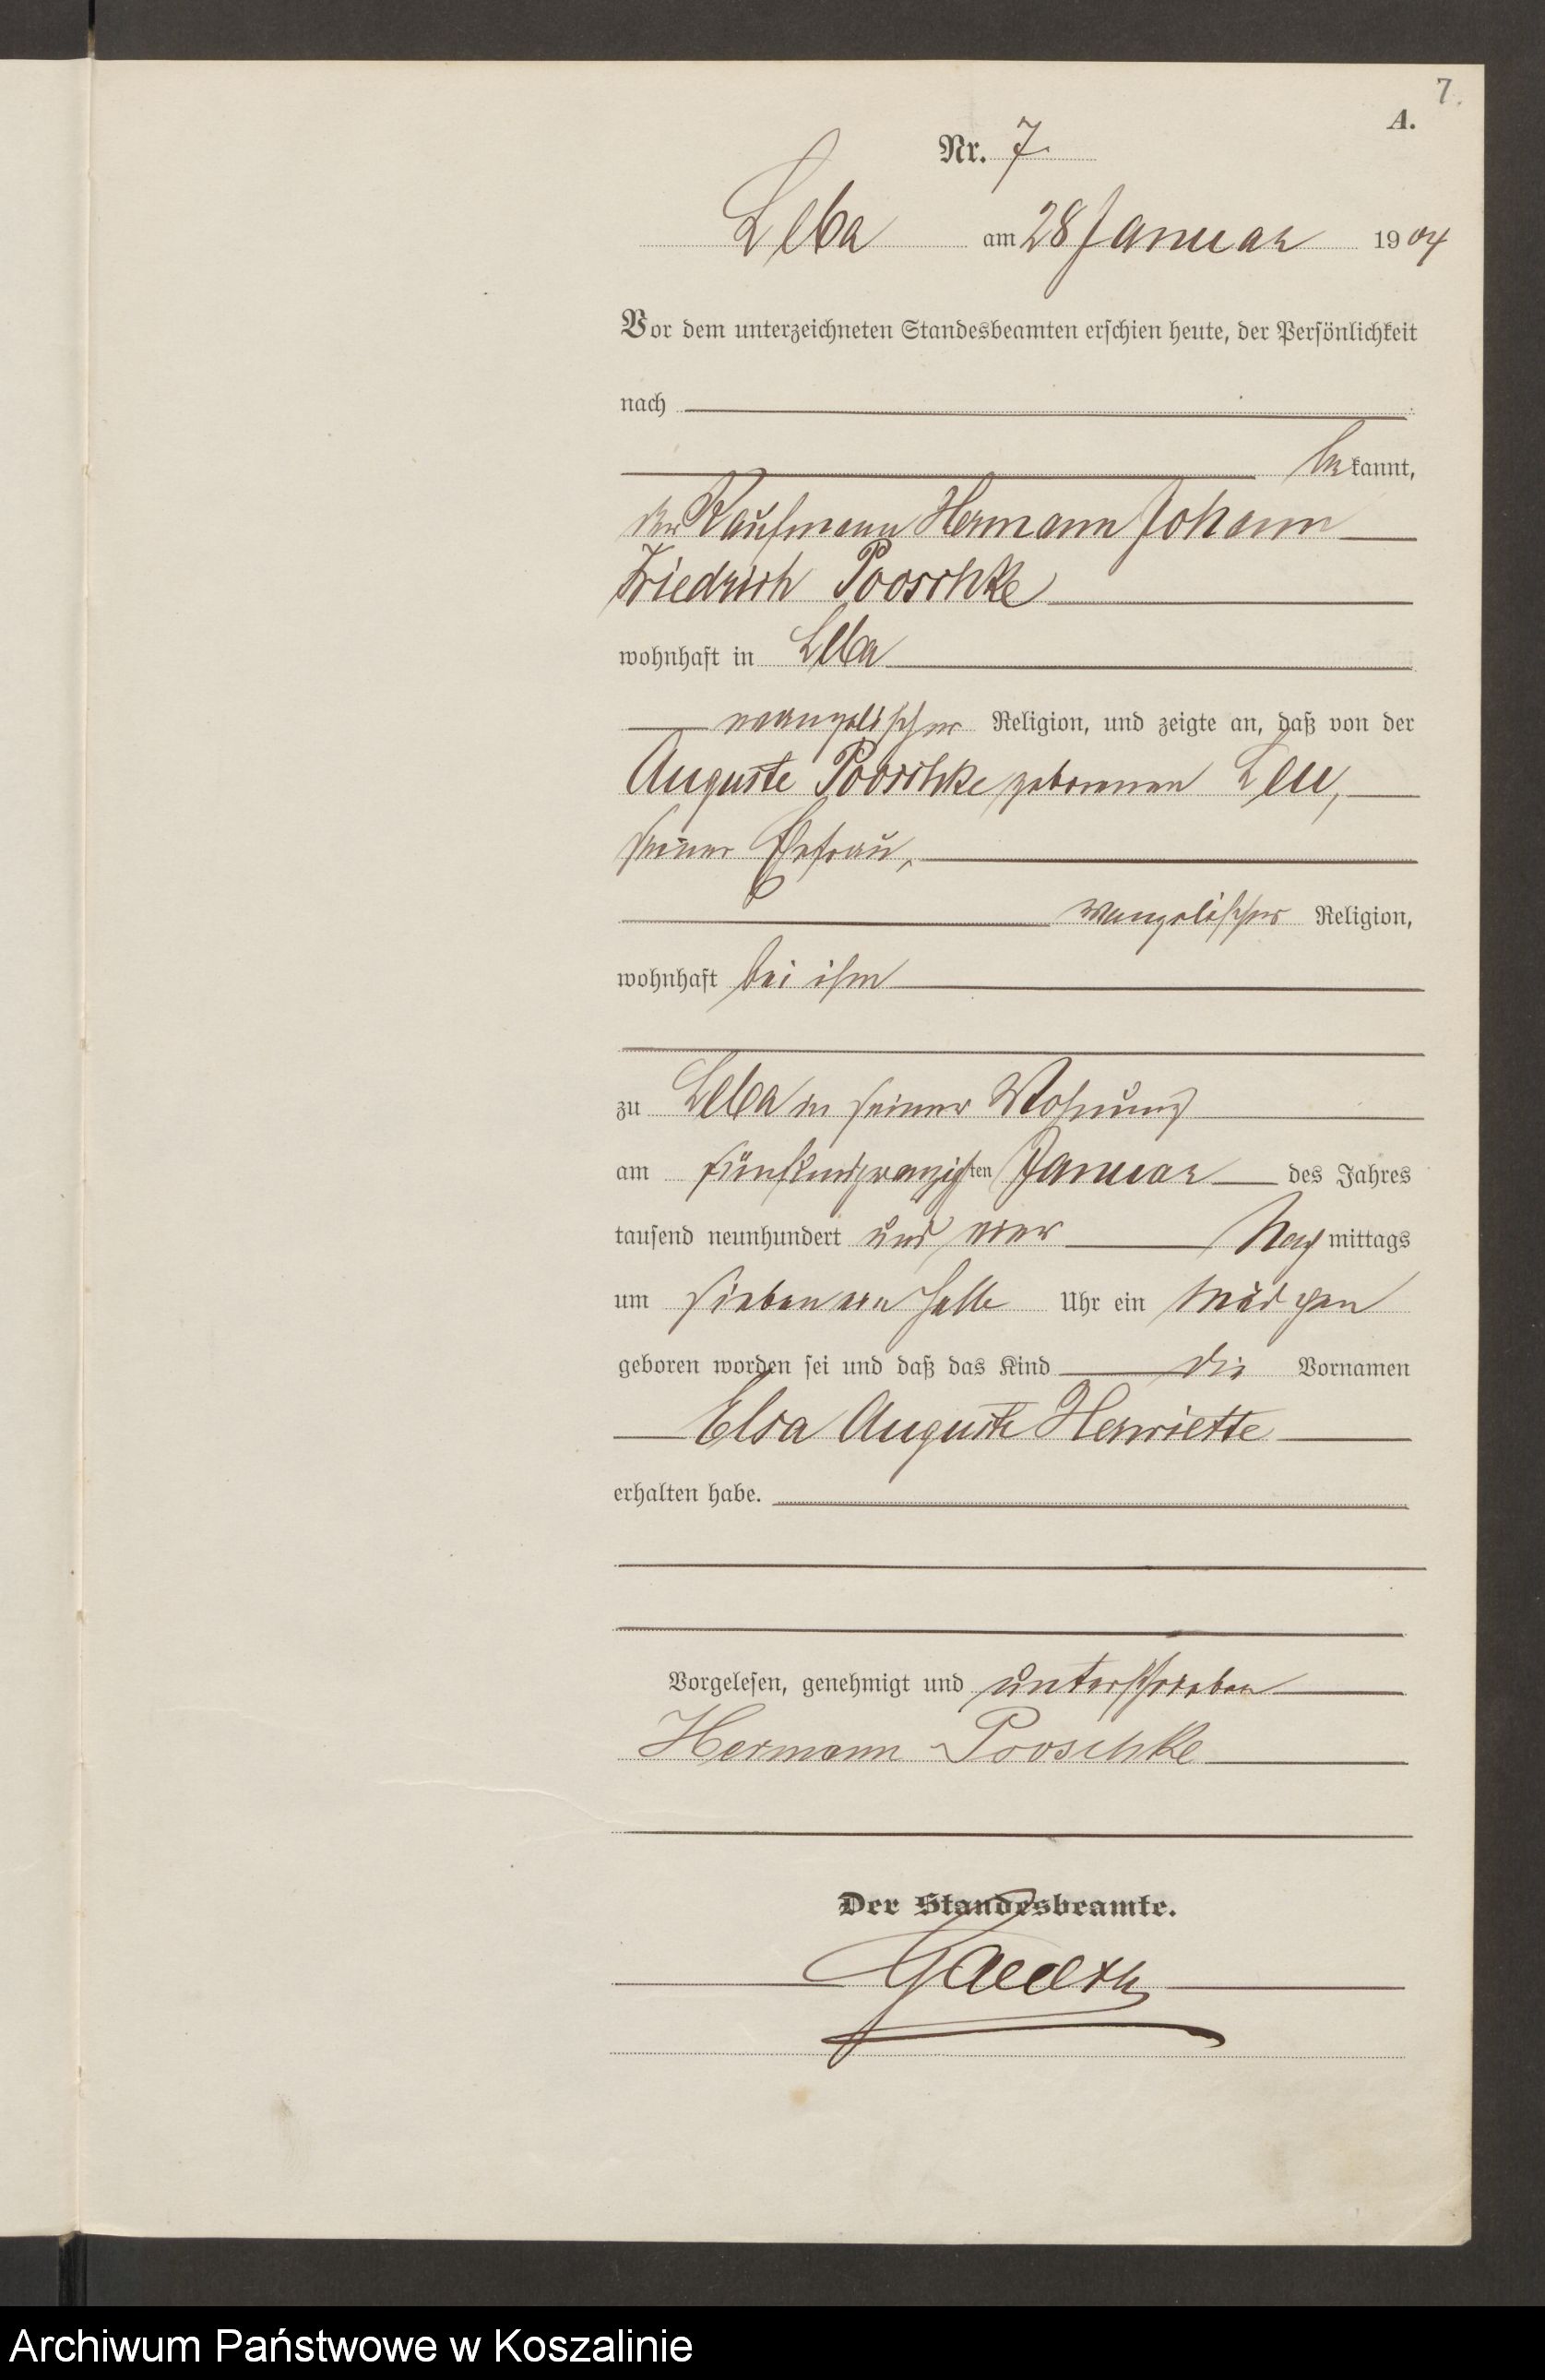 7.
A.
Nr. 7.
Leba am 28 Januar 1904
Vor dem unterzeichneten Standesbeamten erschien heute, der Persönlichkeit
nach
bekannt,
der Kaufmann Hermann Johann
Friedrich Pooschke
wohnhaft in Leba
evangelischer Religion, und zeigte an, daß von der
Auguste Pooschke geborenen Leu,
seiner Ehefrau,
evangelischer Religion,
wohnhaft bei ihm
zu Leba in seiner Wohnung
am fünfundzwanzigsten Januar des Jahres
tausend neunhundert und vier Nachmittags
um sieben ein halb Uhr ein Mädchen
geboren worden sei und daß das Kind die Vornamen
Elsa Auguste Henriette
erhalten habe.
Vorgelesen, genehmigt und unterschrieben
Hermann Pooschke
Der Standesbeamte.
Archiwum Państwowe w Koszalinie